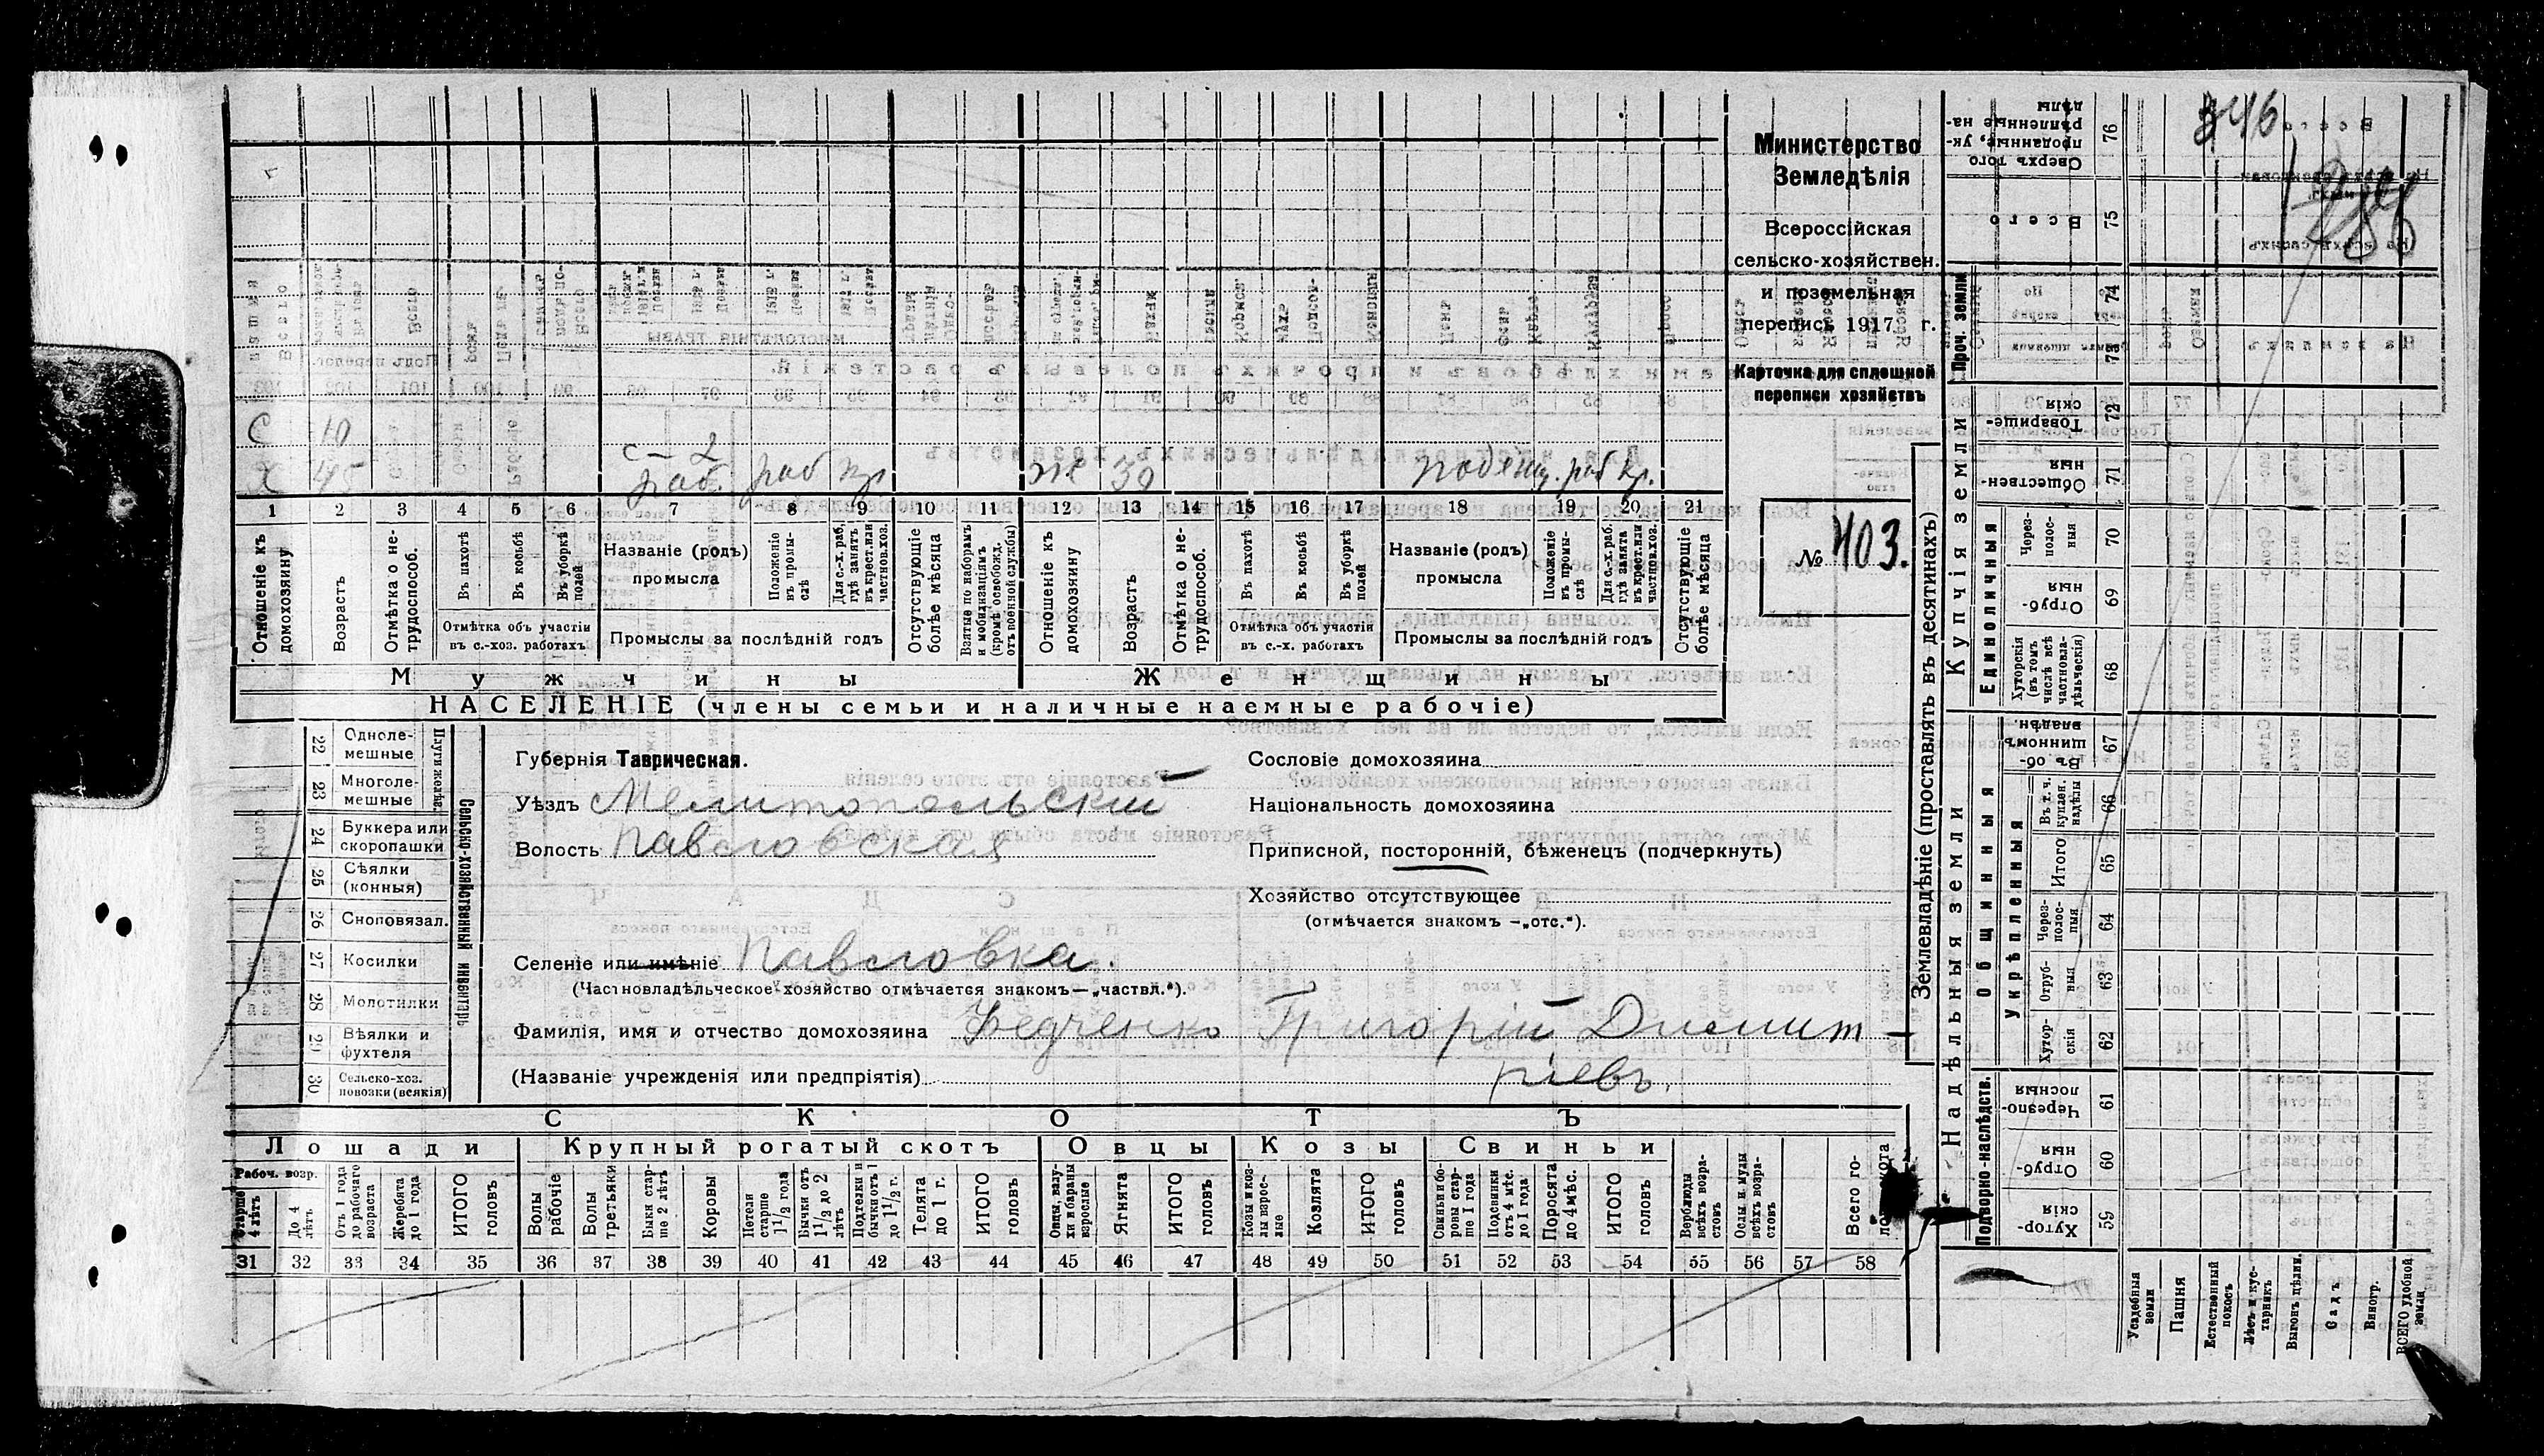 346
Министерство
Земледѣлія
Всероссійская
сельско-хозяйствен.
и поземельная
перепись 1917 г.
Карточка для сплошной
переписи хозяйствъ
№ 403.
С 10
с – 2
Х 45 раб. раб кр ж 39 поденщ. раб кр.
1 2 3 4 5 6 7 8 9 10 11 12 13 14 15 16 17 18 19 20 21
Отношеніе къ домохозяину
Возрастъ
Отмѣтка о не-трудоспособ.
Въ пахотѣ
Въ косьбѣ
Въ уборкѣ полей
Отмѣтка объ участіи
въ с.-хоз. работахъ
Названіе (родъ)
промысла
Положеніе въ промы-слѣ
Для с.-х. раб. гдѣ занятъ въ крест. или частнов. хоз.
Промыслы за послѣдній годъ
Отсутствующіе болѣе мѣсяца
Взятые по наборамъ и мобилизаціямъ (кромѣ освобожд. отъ военной службы)
Отношеніе къ домохозяину
Возрастъ
Отмѣтка о не-трудоспособ.
Въ пахотѣ
Въ косьбѣ
Въ уборкѣ полей
Отмѣтка объ участіи
въ с.-х. работахъ
Названіе (родъ)
промысла
Положеніе въ промы-слѣ
Для с.-х. раб. гдѣ занята въ крест. или частнов. хоз.
Промыслы за послѣдній годъ
Отсутствующіе болѣе мѣсяца
Мужчины Женщины
НАСЕЛЕНІЕ (члены семьи и наличные наемные рабочіе)
Сельско-хозяйственный инвентарь
22 Однолe-мешные
23 Многоле-мешные
24 Буккера или скоропашки
25 Сѣялки (конныя)
26 Сноповязал.
27 Косилки
28 Молотилки
29 Вѣялки и фухтеля
30 Сельско-хоз. повозки (всякія)
Губернія Таврическая.
Уѣздъ Мелитопольскій
Волость Павловская
Селеніе или имѣніе Павловка.
(Частновладѣльческое хозяйство отмѣчается знакомъ—„частвл.“).
Фамилія, имя и отчество домохозяина Федченко Григорій Дмит-
(Названіе учрежденія или предпріятія) ріевъ.
Сословіе домохозяина
Національность домохозяина
Приписной, посторонній, бѣженецъ (подчеркнуть)
Хозяйство отсутствующее
(отмѣчается знакомъ —„отс.“).
СКОТЪ
Лошади Крупный рогатый скотъ Овцы Козы Свиньи
Рабоч. возр.
Старше 4 лѣтъ
До 4 лѣтъ
Отъ 1 года до рабочаго возраста
Жеребята до 1 года
ИТОГО головъ
Волы рабочіе
Волы третьяки
Быки стар-ше 2 лѣтъ
Коровы
Нетели старше 1½ года
Бычки отъ 1½ до 2 лѣтъ
Подтелки и бычки отъ 1 до 1½ г.
Телята до 1 г.
ИТОГО головъ
Овцы, валу-хи и бараны взрослые
Ягнята
ИТОГО головъ
Козы и коз-лы взрос-лые
Козлята
ИТОГО головъ
Свиньи и бо-ровы стар-ше 1 года
Подсвинки отъ 4 мѣс. до 1 года
Поросята до 4 мѣс.
ИТОГО головъ
Верблюды всѣхъ возра-стовъ
Ослы и мулы всѣхъ возра-стовъ
Всего го-ловъ скота
31 32 33 34 35 36 37 38 39 40 41 42 43 44 45 46 47 48 49 50 51 52 53 54 55 56 57 58
Землевладѣніе (проставлять въ десятинахъ)
Надѣльныя земли
Купчія земли
Проч. земли
Подворно-наслѣдств.
Общинныя
Укрѣпленныя
Единоличныя
Хутор-скія 59
Отруб-ныя 60
Черезпо-лосныя 61
Хутор-скія 62
Отруб-ныя 63
Через-полос-ныя 64
Итого 65
Въ т. ч. куплен. надѣлы 66
Въ об-щинномъ владѣн. 67
Хуторскія (въ томъ числѣ всѣ частновла-дѣльческія) 68
Отруб-ныя 69
Через-полос-ныя 70
Обществен-ныя 71
Товарище-скія 72
73
74
Всего 75
Сверхъ того проданные, ук-рѣпленные на-дѣлы 76
Усадебныя земли
Пашня
Естественный покосъ
Лѣсъ и кус-тарникъ
Выгонъ цѣлин.
Садъ
Виногр.
ВСЕГО удобной земли